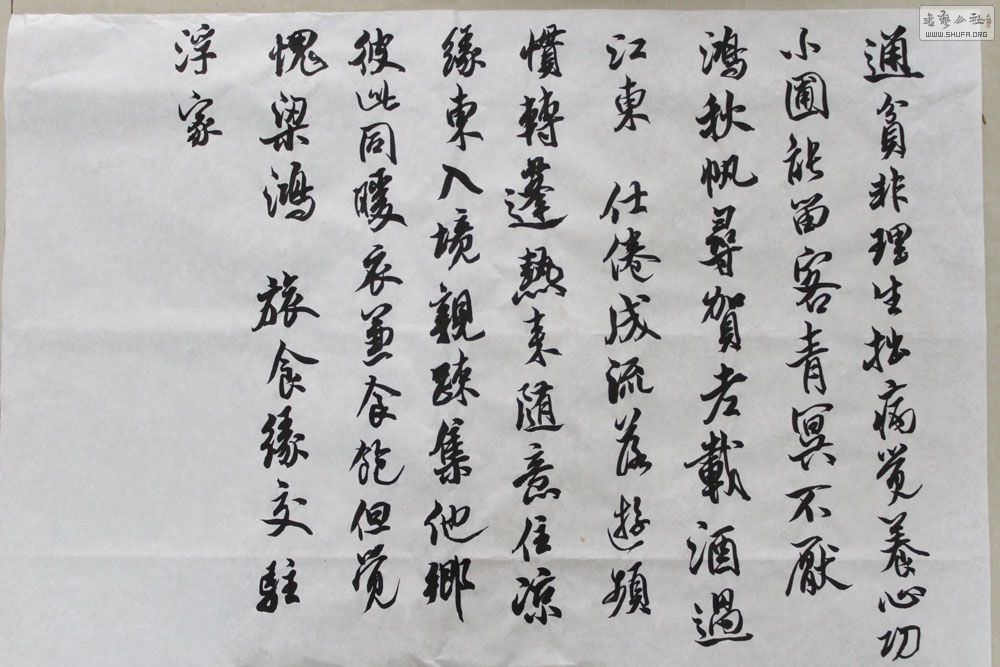 通貧非理生拙病覺養心功
小圃能留客青冥不厭
鴻秋帆尋賀老載酒過
江東 仕倦成流落遊頻
慣轉蓬熱来随意住涼
緣東入境親疎集他鄉
彼此同暖衣兼食飽但覺
愧梁鴻 旅食緣交駐
浮家
書藝公社
WWW.SHUFA.ORG